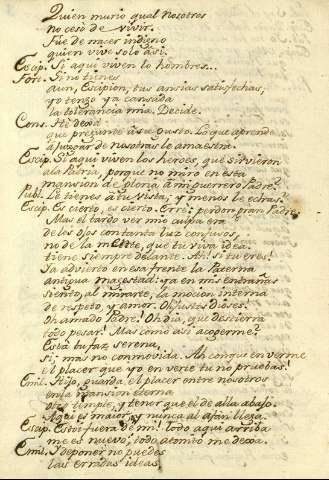 Quien murio qual nosotros
no cesò de vivir.
Fue de nacer indigno
quien vive solo asi.
Escip. Si aqui viven lo hombres...
Fort. Si no tienes
aun, Escipion, tus ansias satisfechas,
yo tengo ya cansada
la tolerancia mia. Decide.
Cons. dexa
que pregunte à su gusto. Lo que aprende
à juzgar de nosotras le amaestra.
Escip. Si aqui viven los heroes, que sirvieron
a la Patria, porque no miro en esta
mansion de gloria, à mi guerrero Padre?
Publ. Le tienes à tu vista, y menos le echas?
Escip. Es cierto, es cierto. Errè: perdon gran Padre
Mas el tardo ver mio culpa era
de los ojos con tanta luz confusos,
no de la mente, que tu viva idea
tiene siempre delante. Ah! si tu eres!
Ya advierto en esa frente la Paterna
antigua magestad: ya en mis entrañas
siento, al mirarte, la mocion interna
de respeto, y amor. Oh justos Dioses!
Oh amado Padre! Oh dia, que destierra
todo pesar! Mas como asi acogerme?
Està tu faz serena,
si; mas no conmovida. Ah conque en verme
el placer que yo en verte tu no pruebas!
Emil. Hijo, guarda el placer entre nosotros
en la mansion eterna
otro temple, y tener que el de alla abajo.
Aqui es maior, y nunca al afan llega.
Escip. Estoi fuera de mi! todo aqui arriba
me es nuevo; todo atonito me dexa.
Emil. Deponer no puedes
las erradas ideas,